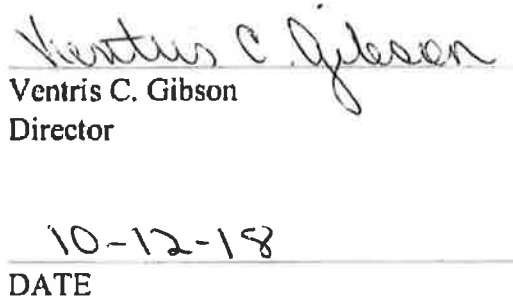 Ventris C. Gibson
Ventris C. Gibson
Director
10-12-18
DATE